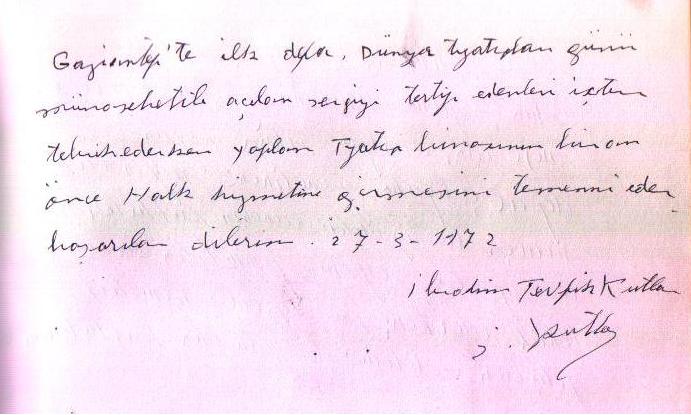 Gaziantep'te ilk defa, Dünya tiyatroları günü
münasebetile açılan sergiyi tertip edenleri içten
tebrik ederken yapılan Tiyatro binasının bir an
önce Halk hizmetine girmesini temenni eder
başarılar dilerim. 27-3-1972
İbrahim Tevfik Kutlar
İ. Kutlar